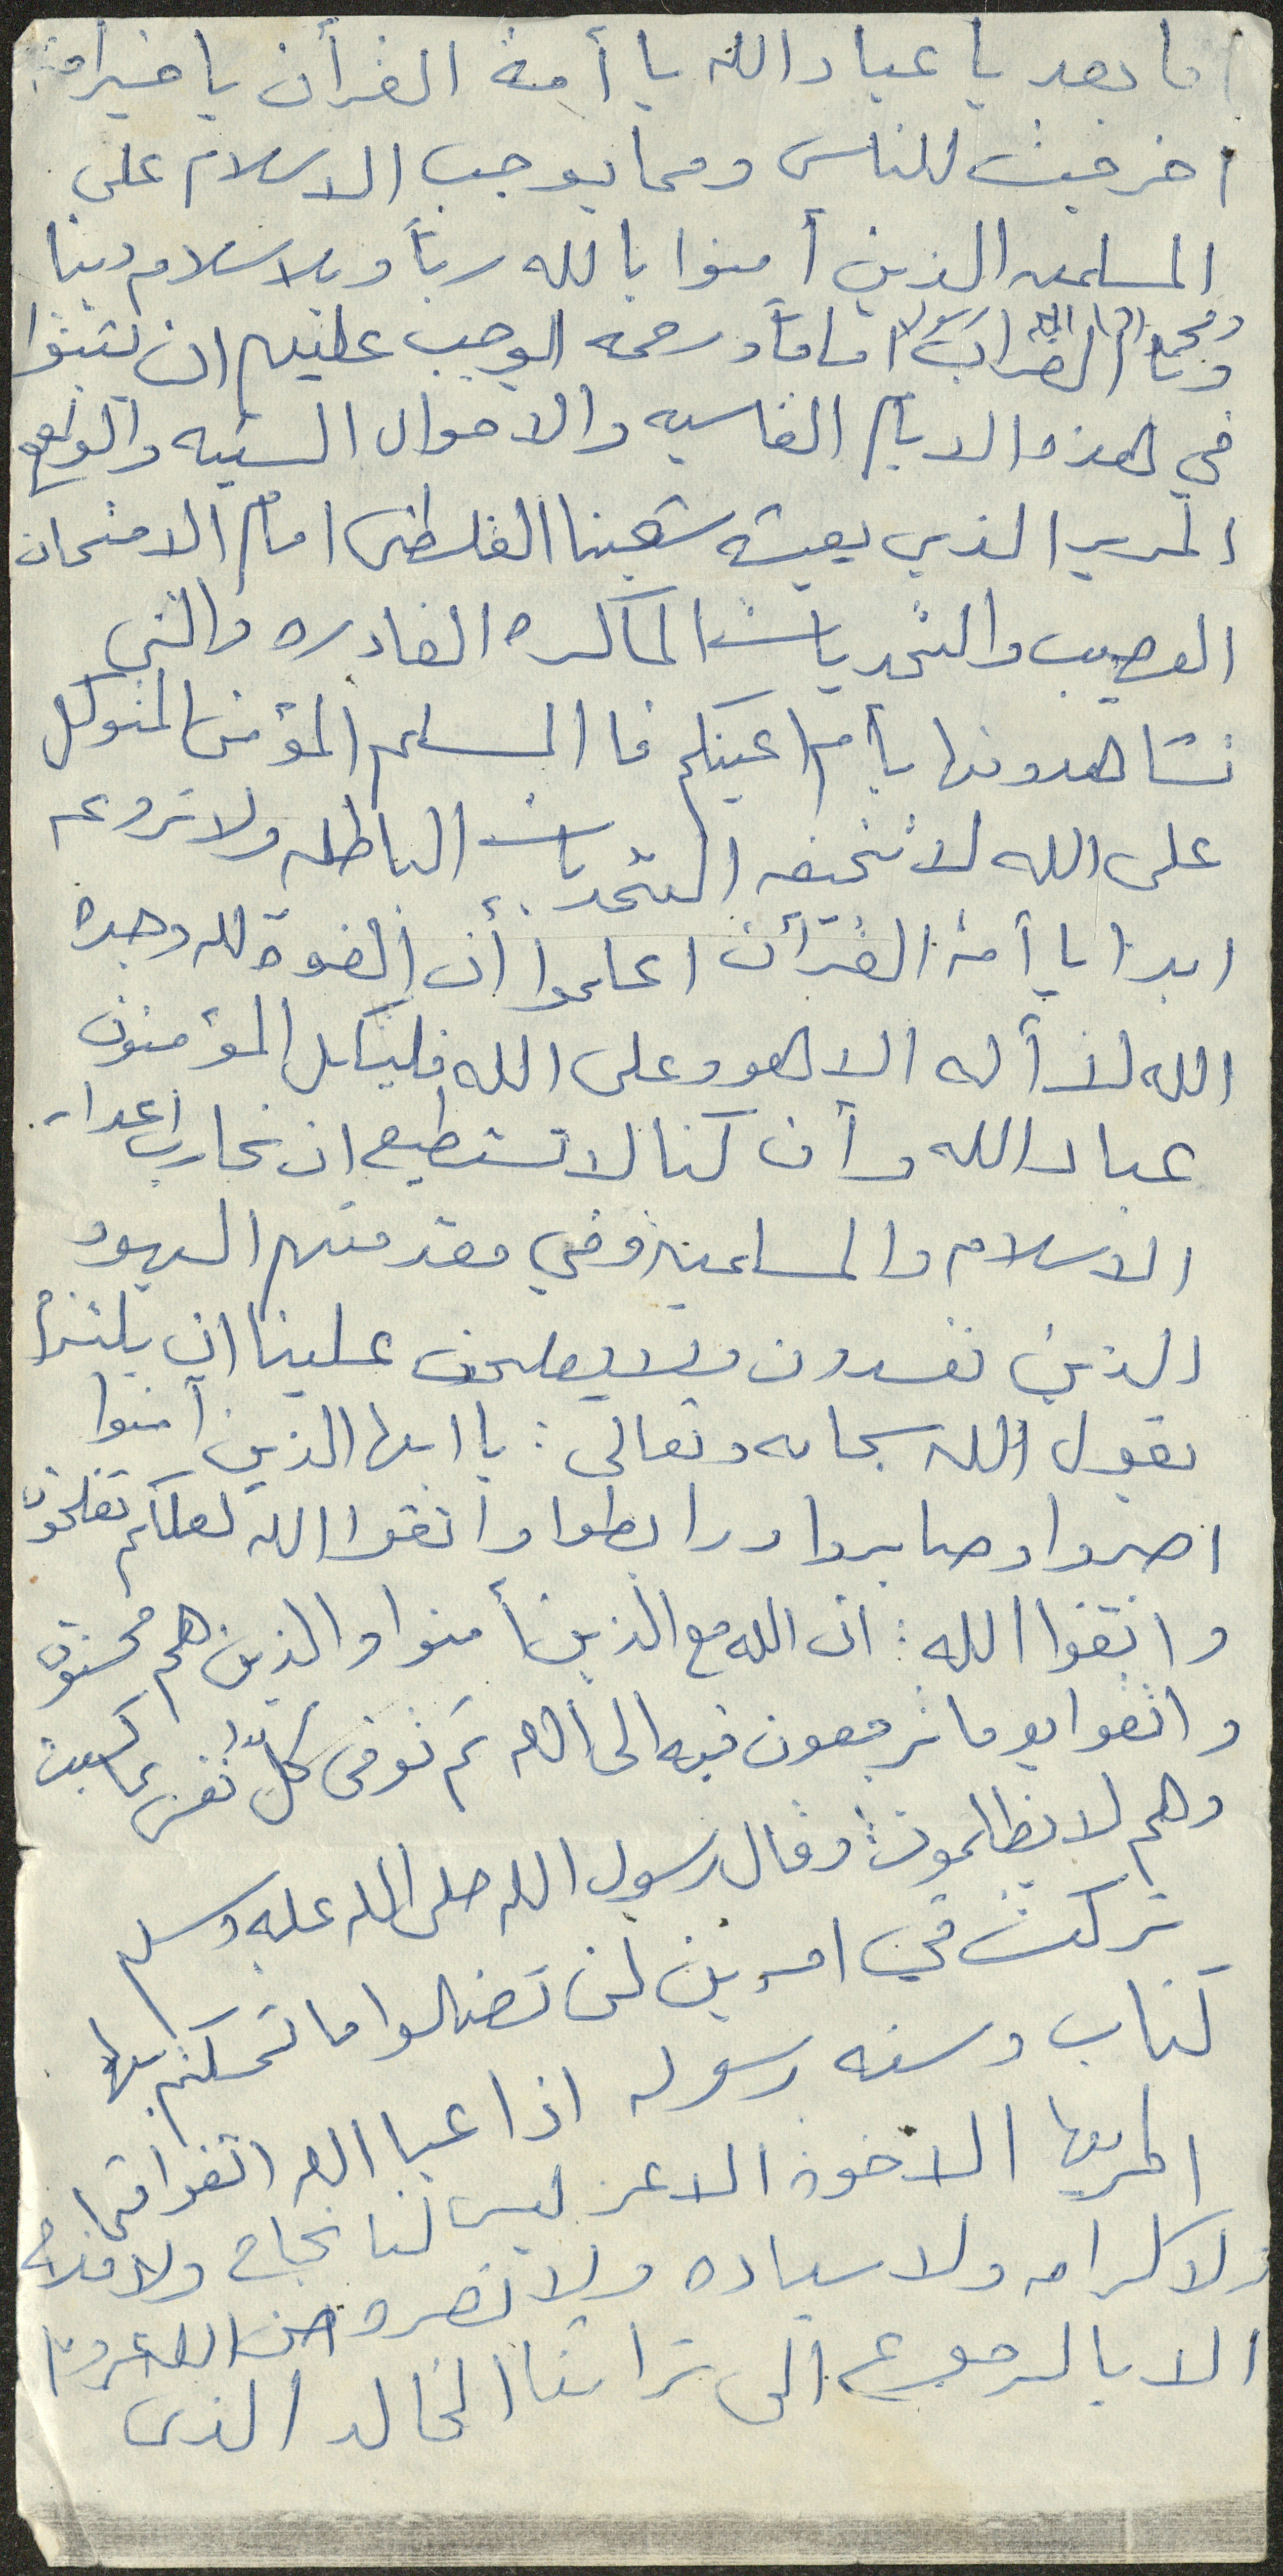 اما بعد يا عباد الله يا أمة القرأن يا خير امة
اخرجت للناس ومما يوجب الاسلام على
المسلمين الذين أمنوا بالله رباً وبلاسلام دينا
ومحمد
وبا القرأن اماماً ورحمه الوجب عليهم ان يثبتوا
في هذه الايام القاسيه والاحوال السيئه والواقع
المرير الذي يعيشه شعبنا الفلسطني امام الامتحان
العصيب والتحديات الماكره الغادره والتي
تشاهدونها بأم اعينكم فا المسلم المؤمن المتوكل
على الله لا تخيفه التحديات الباطله ولا تروعه
ابدا يا أمة القرأن اعلموا أن القوة لله وحده
الله لا أله الا هو وعلى الله فليتكل المؤمنون
عباد الله وأن كنا لا نستطيع ان نحارب اعداء
الاسلام والمسلمين وفي مقدمتهم اليهود
الذين يفسدون ولا يصلحون علينا ان
يقول الله سبحانه وتعالى : يا ايها الذين أمنوا
اصبروا وصابروا ورابطوا واتقوا الله لعلكم تفلحون
واتقوا الله : ان الله مع الذين أمنوا والذين هم محسنون
واتقوا يوما ترجعون فيه الى الله ثم توفى كل نفس بما كسبت
وهم لا يظلمون : وقال رسول الله صلى الله عليه وسلم
تركت في امرين لن تضلوا ما تمسكتم بها
كتاب وسنه رسوله اذا عبا الله اتقوا
ايها الاخوة الاعز ليس لنا نجاح ولا فلاح
ولا كرامه ولا سياده ولا نصر
الا بالرجوع الى تراثنا الخالد الذي